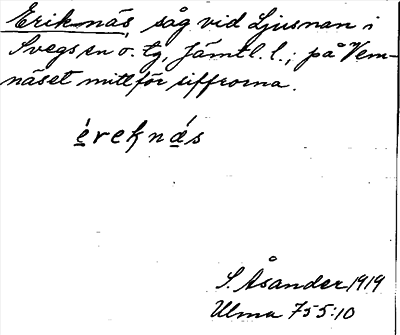 Eriknäs, såg vid Ljusnan i
Svegs sn o. tg, Jämtl. l.; på Vem-
näset mittför siffrorna.
èreknäs
S. Åsander 1919
Ulma 755:10